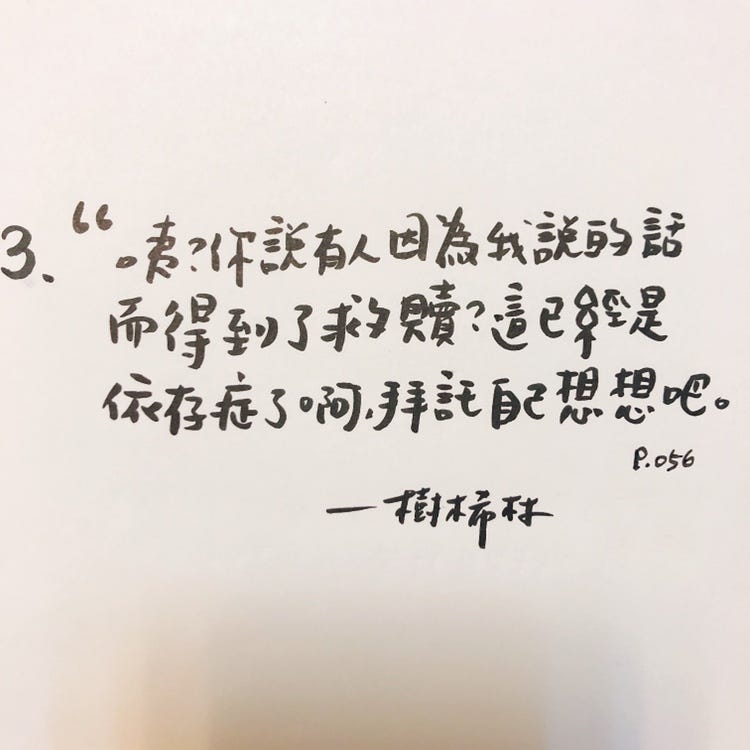 3、“咦?你說有人因為我說的話
而得到了救贖?這已經是
依存症了啊,拜託自己想想吧。
P.056
—樹梤林